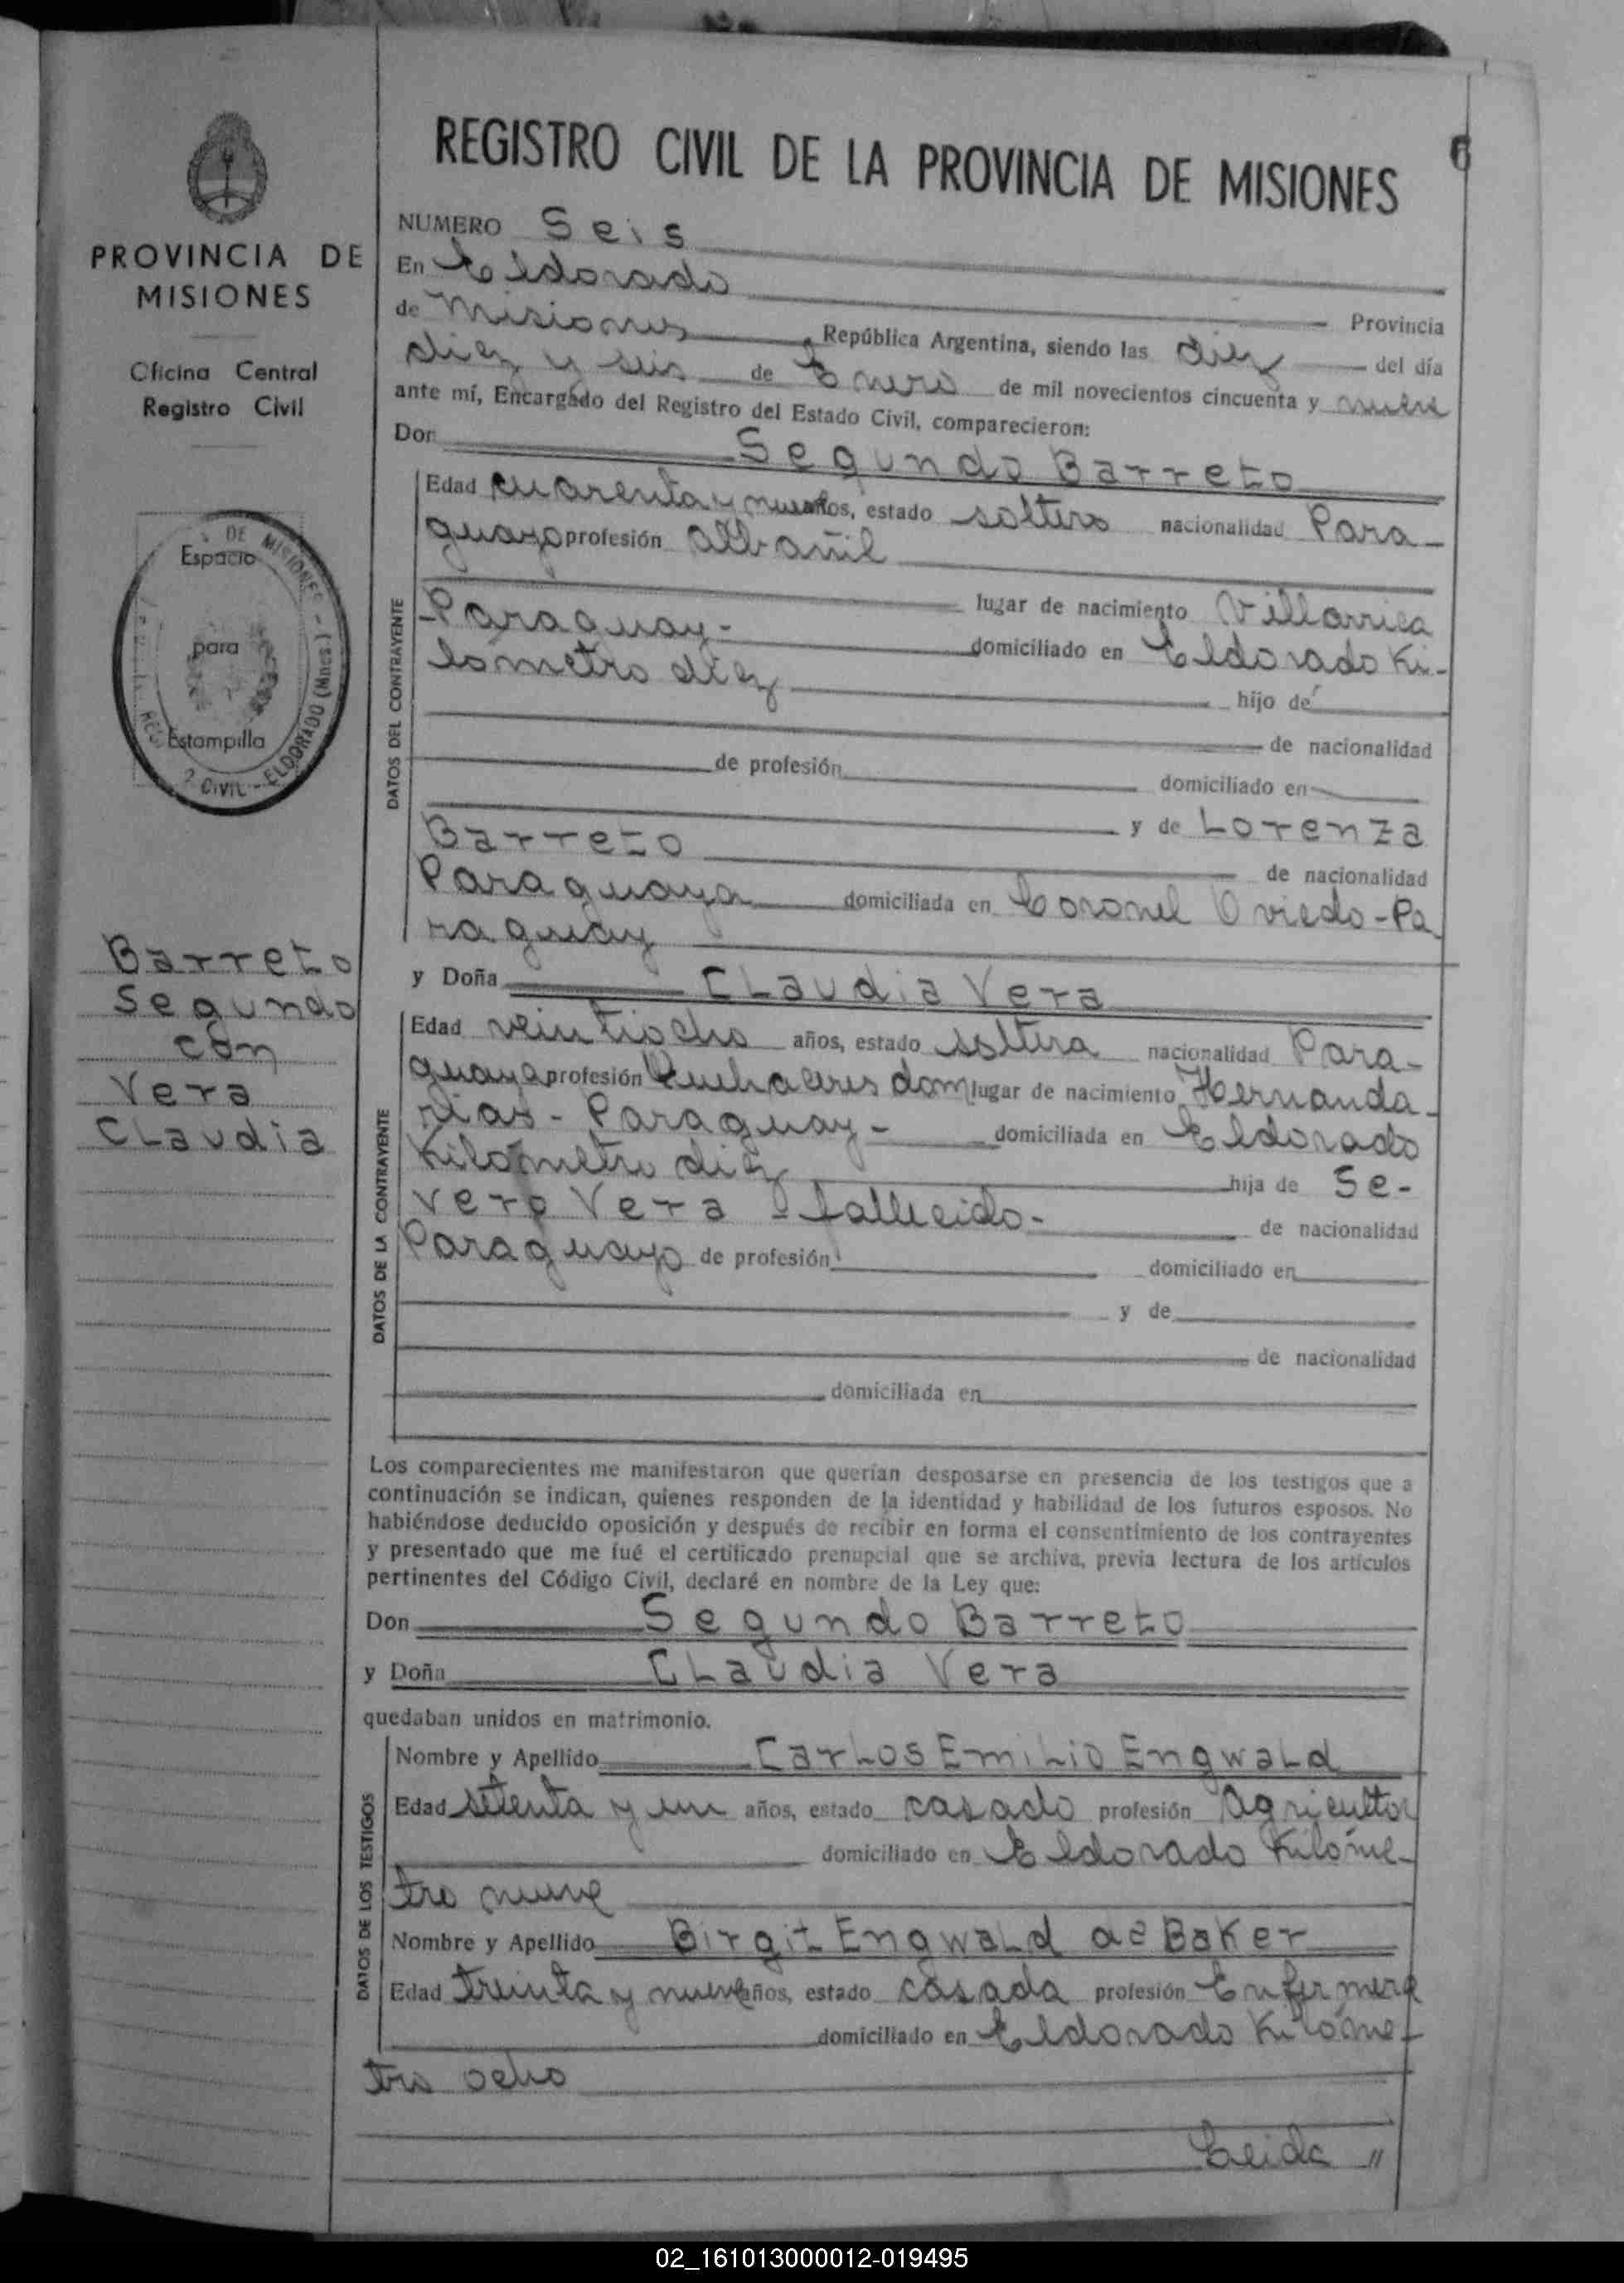 6
REGISTRO CIVIL DE LA PROVINCIA DE MISIONES
PROVINCIA DE
MISIONES
Oficina Central
Registro Civil
DE MISIONES
Espacio
para
Estampilla
CIVIL - ELDORADO (Mnes.)
Barreto
Segundo
con
Vera
Claudia
NUMERO Seis
En Eldorado
Provincia
de Misiones, República Argentina, siendo las diez del día
diez y seis de Enero de mil novecientos cincuenta y nueve
ante mí, Encargado del Registro del Estado Civil, comparecieron:
Don Segundo Barreto
DATOS DEL CONTRAYENTE
Edad cuarenta y nueve años, estado soltero nacionalidad Para-
guayo profesión Albañil
lugar de nacimiento Villarrica
-Paraguay- domiciliado en Eldorado Ki-
lómetro diez hijo de
de nacionalidad
de profesión domiciliado en
y de Lorenza
Barreto de nacionalidad
Paraguaya domiciliada en Coronel Oviedo-Pa
raguay
y Doña Claudia Vera
DATOS DE LA CONTRAYENTE
Edad veintiocho años, estado soltera nacionalidad Para-
guaya profesión Quehaceres dom lugar de nacimiento Hernanda-
rias - Paraguay - domiciliada en Eldorado
Kilómetro diez hija de Se-
vero Vera - fallecido- de nacionalidad
Paraguayo de profesión domiciliado en
y de
de nacionalidad
domiciliada en
Los comparecientes me manifestaron que querían desposarse en presencia de los testigos que a
continuación se indican, quienes responden de la identidad y habilidad de los futuros esposos. No
habiéndose deducido oposición y después de recibir en forma el consentimiento de los contrayentes
y presentado que me fué el certificado prenupcial que se archiva, previa lectura de los artículos
pertinentes del Código Civil, declaré en nombre de la Ley que:
Don Segundo Barreto
y Doña Claudia Vera
quedaban unidos en matrimonio.
DATOS DE LOS TESTIGOS
Nombre y Apellido Carlos Emilio Engwald
Edad setenta y un años, estado casado profesión Agricultor
domiciliado en Eldorado Kilóme-
tro nueve
Nombre y Apellido Birgit Engwald de Baker
Edad treinta y nueve años, estado casada profesión Enfermera
domiciliado en Eldorado Kilóme-
tro ocho
Leida "
02_161013000012-019495